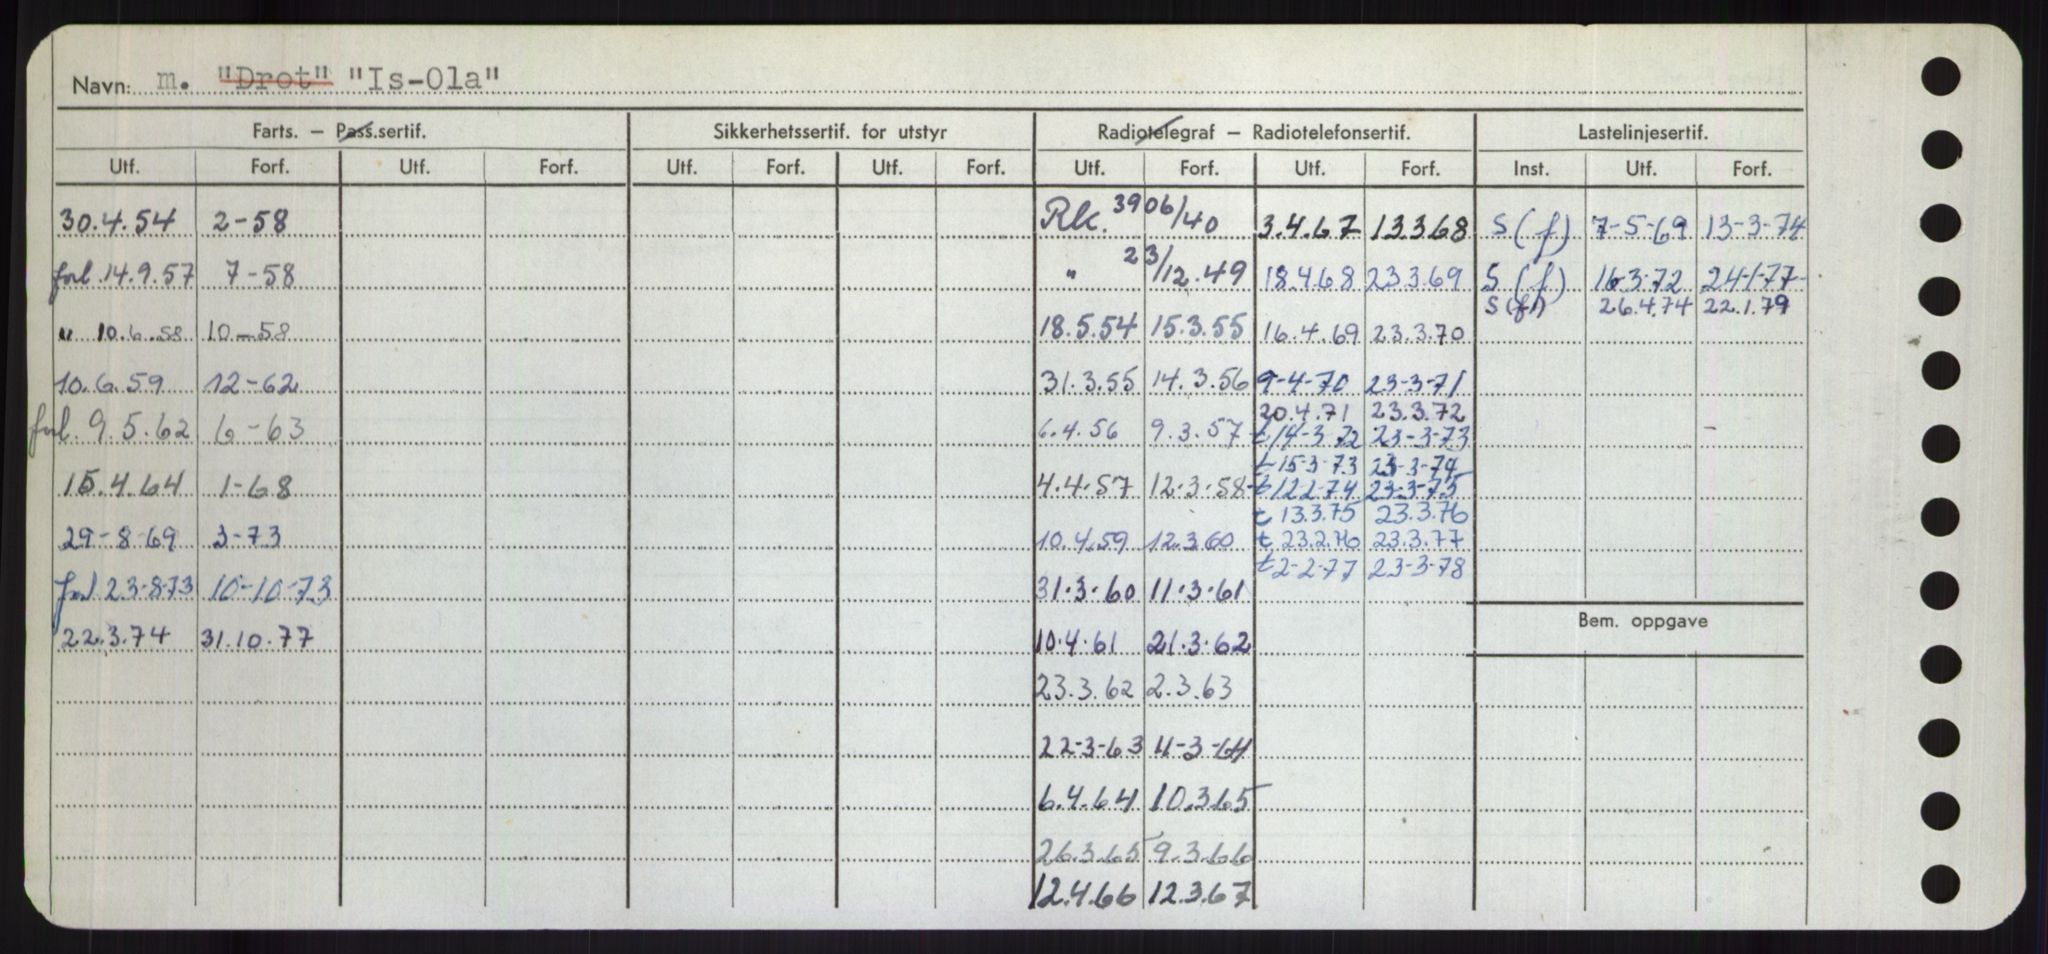 Navn: m. "Drot" "Is-Ola"
Farts. – Pass.sertif. Sikkerhetssertif. for utstyr Radiotelegraf – Radiotelefonsertif. Lastelinjesertif.
Utf. Forf. Utf. Forf. Utf. Forf. Utf. Forf. Utf. Forf. Utf. Forf. Inst. Utf. Forf.
30.4.54 2-58 Rk. 3906/40 3.4.67 13368 S(f) 7-5-69 13-3-74
forl. 14.9.57 7-58 " 23/12.49 18.4.68 23369 S(f) 16-3-72 24-1-77
S(f) 26.4.74 22.1.79
" 10.6.58 10-58 18.5.54 15.3.55 16.4.69 23.3.70
10.6.59 12-62 31.3.55 14.3.56 9-4-70 23-3-71
20.4.71 23.3.72
forl. 9.5.62 6-63 6.4.56 9.3.57 t 14-3-72 23-3-73
t 15-3-73 23-3-74
15.4.64 1-68 4.4.57 12.3.58 t 12.2.74 23-3-75
t 13.3.75 23.3.76
29-8-69 3-73 10.4.59 12.3.60 t 23.2.76 23.3.77
t 2-2-77 23-3-78
forl 23-8-73 10-10-73 31.3.60 11.3.61
Bem. oppgave
22.3.74 31.10.77 10.4.61 21.3.62
23.3.62 2.3.63
22-3-63 4-3-64
6.4.64 10.3.65
26.3.65 9.3.66
12.4.66 12.3.67